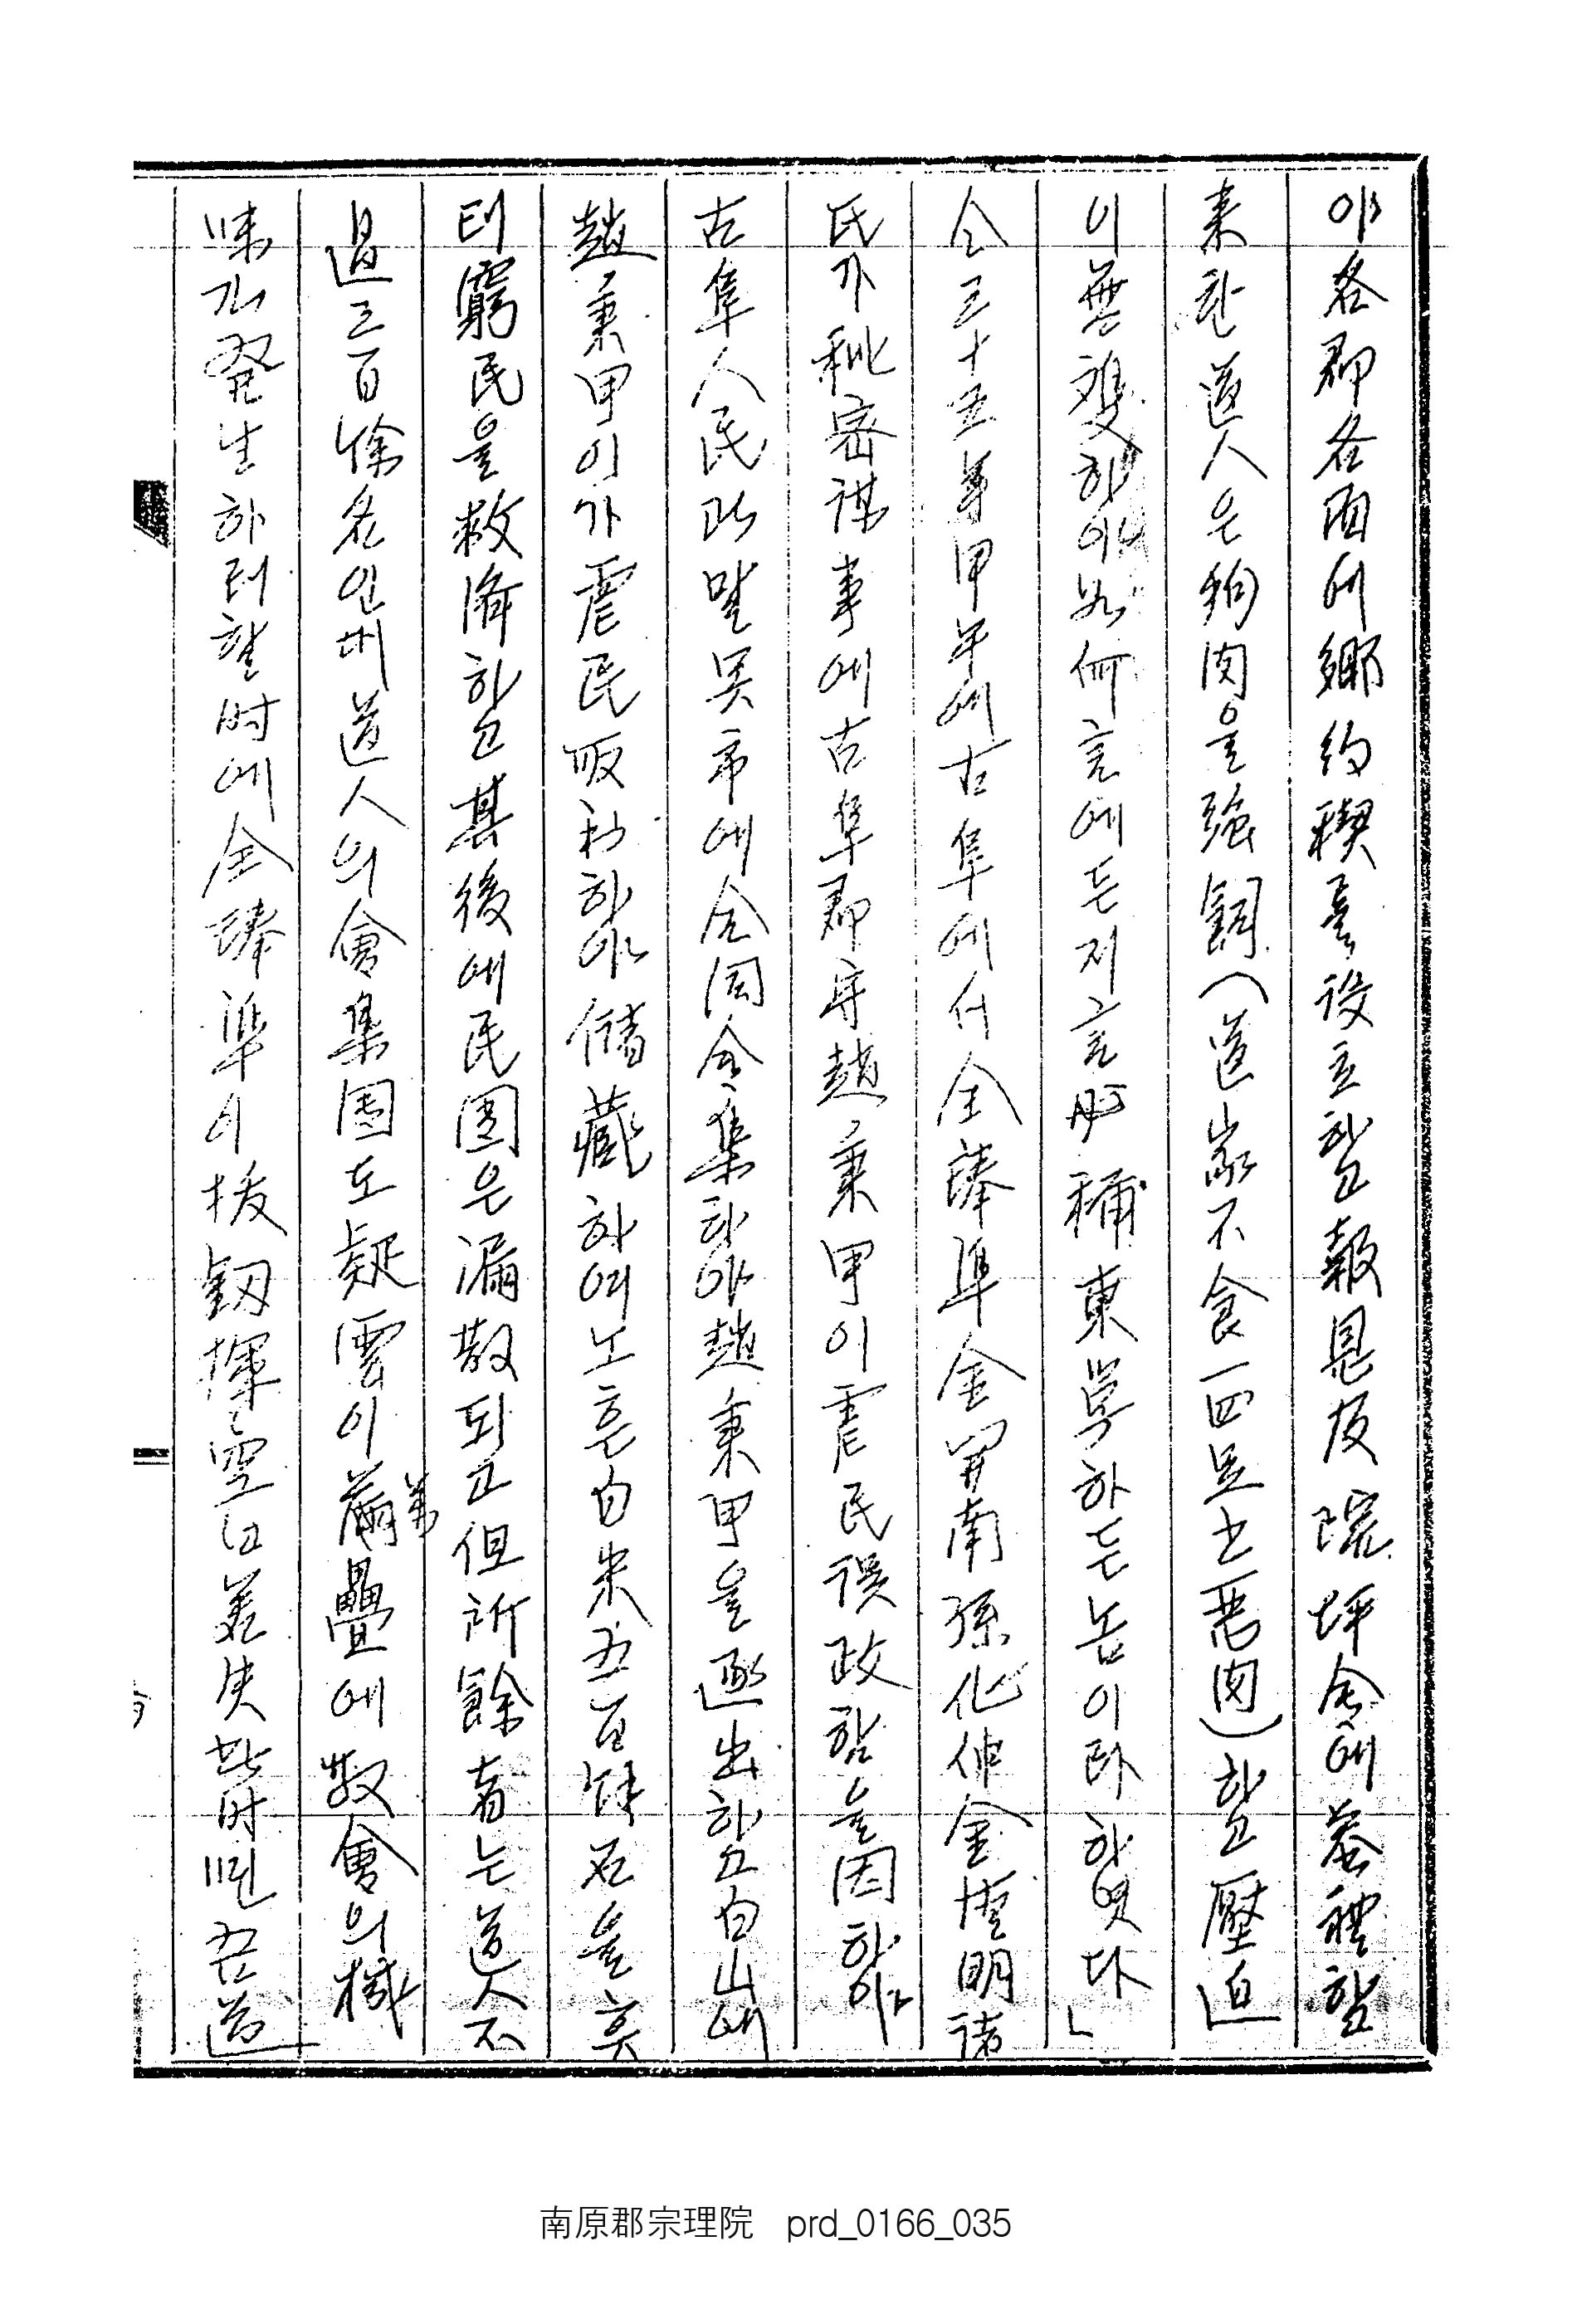 야 各郡各面에 鄕約稧를 設立하고 報恩及院坪會에 參禮하고
來한 道人은 狗肉을 强飼(道家不食一四足之惡肉)하고 壓迫
이 無雙하야 如何言에든지 言必稱東學하든놈이라 하엿다」
仝三十五年甲午에 古阜에서 全琫準 金開南 孫化仲 金德明 諸
氏가 秘密謀事에 古阜郡守趙秉甲이 虐民誤政함을 因하야
古阜人民이 馬項市에 仝同會集하야 趙秉甲을 逐出하고 白山에
趙秉甲이가 虐民取利하야 儲藏하여노흔 白米五百餘石을 突
破 窮民을 救濟하고 其後에 民團은 漏散되고 但所餘者는 道人不
過三百餘名인대 道人의 會集團도 疑雲이 萬疊에 散會의 機
味가 發生하터할 時에 全琫準이 拔劒揮空曰 若失此時면 吾道
南原郡宗理院 prd_0166_035